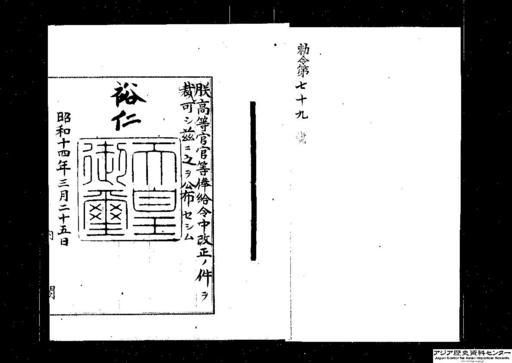 勅令第七十九號
朕高等官官等俸給令中改正ノ件ヲ
裁可シ茲ニ之ヲ公布セシム
裕仁
天皇
御璽
昭和十四年三月二十五日
内閣
アジア歴史資料センター
Japan Center for Asian Historical Records